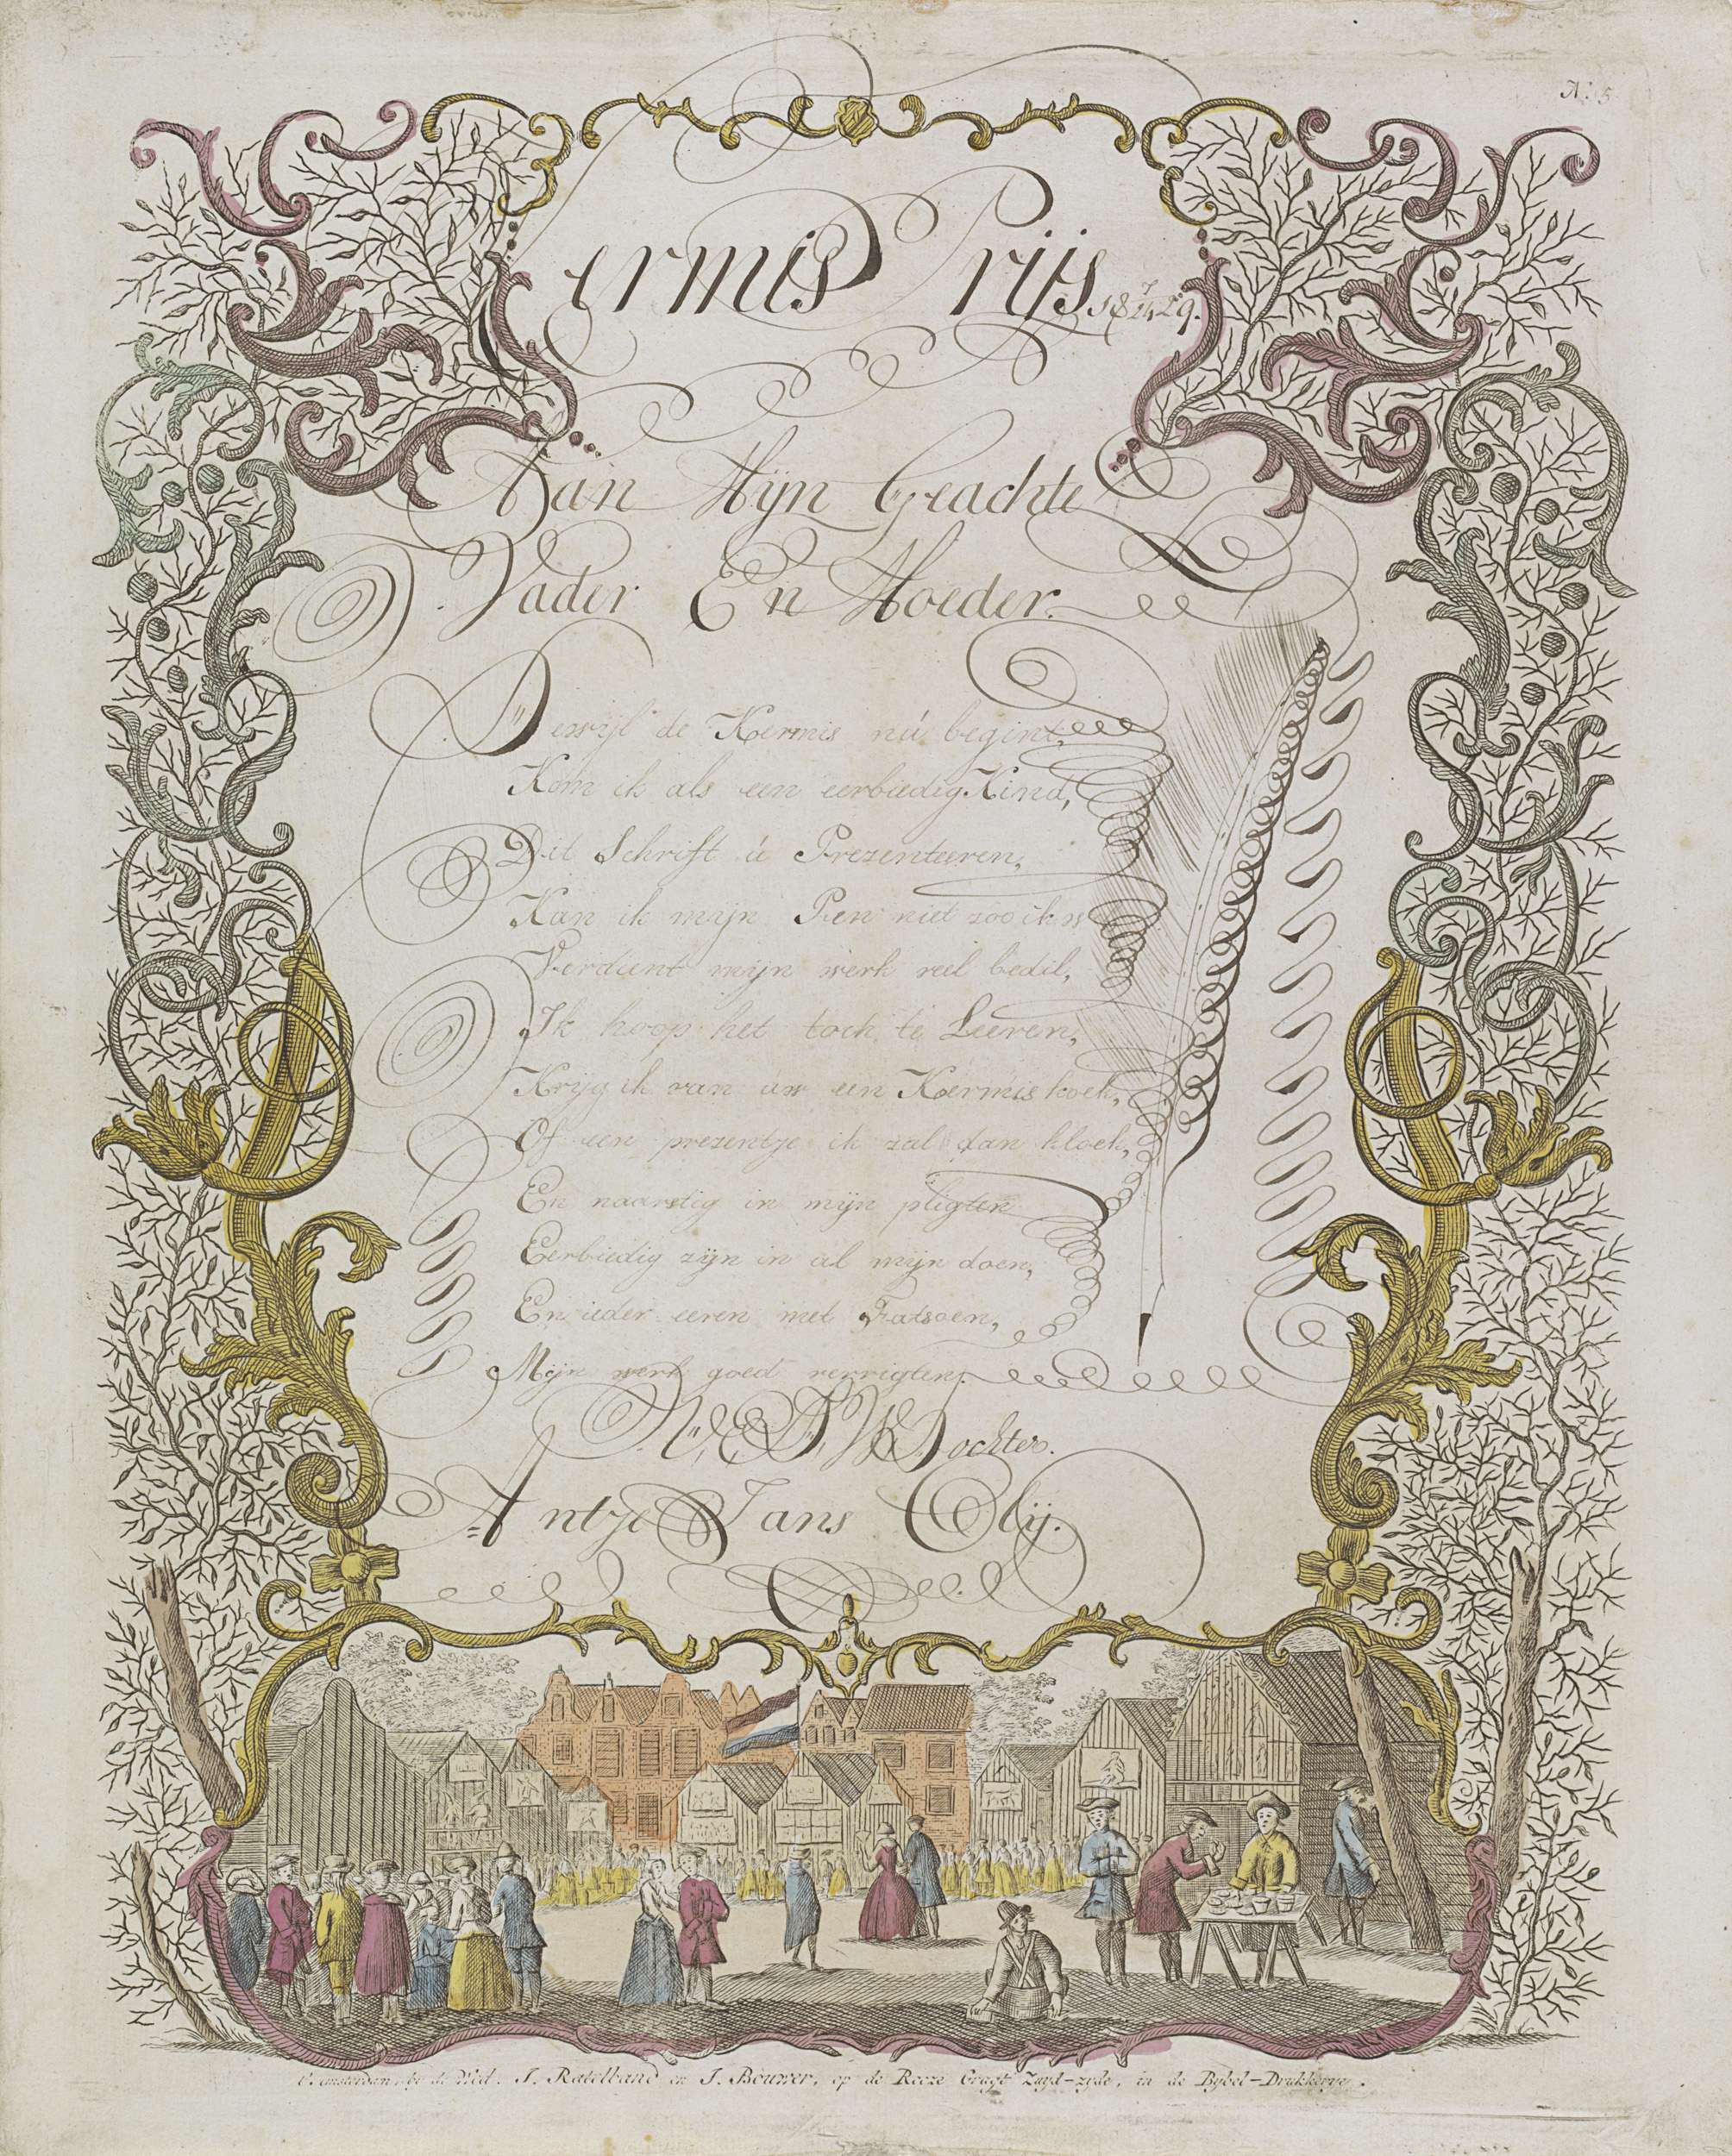 N. 5
Kermis Prijs
Aan Mijn Geachte
Vader En Moeder.
Dewijl de Kermis nú begint,
Kom ik als een eerbiedig Kind,
Dit Schrift ú Prezenteeren,
Kan ik mijn Pen niet zoo ik
Verdient mijn werk veel bedil,
Ik hoop het toch te Leeren,
Krijg ik van úw een Kermis koek,
Of een prezentje ik zal dan kloek,
En naarstig in mijn pligten
Eerbiedig zijn in al mijn doen,
En ieder eeren met Fatsoen,
Mijn werk goed verrigten.
Dochter.
Antje Jans Olij.
t'Amsterdam, by de Wed. J. Ratelband en J. Bouwer, op de Rooze Gragt Zuyd-zyde, in de Bybel-Drukkerye.